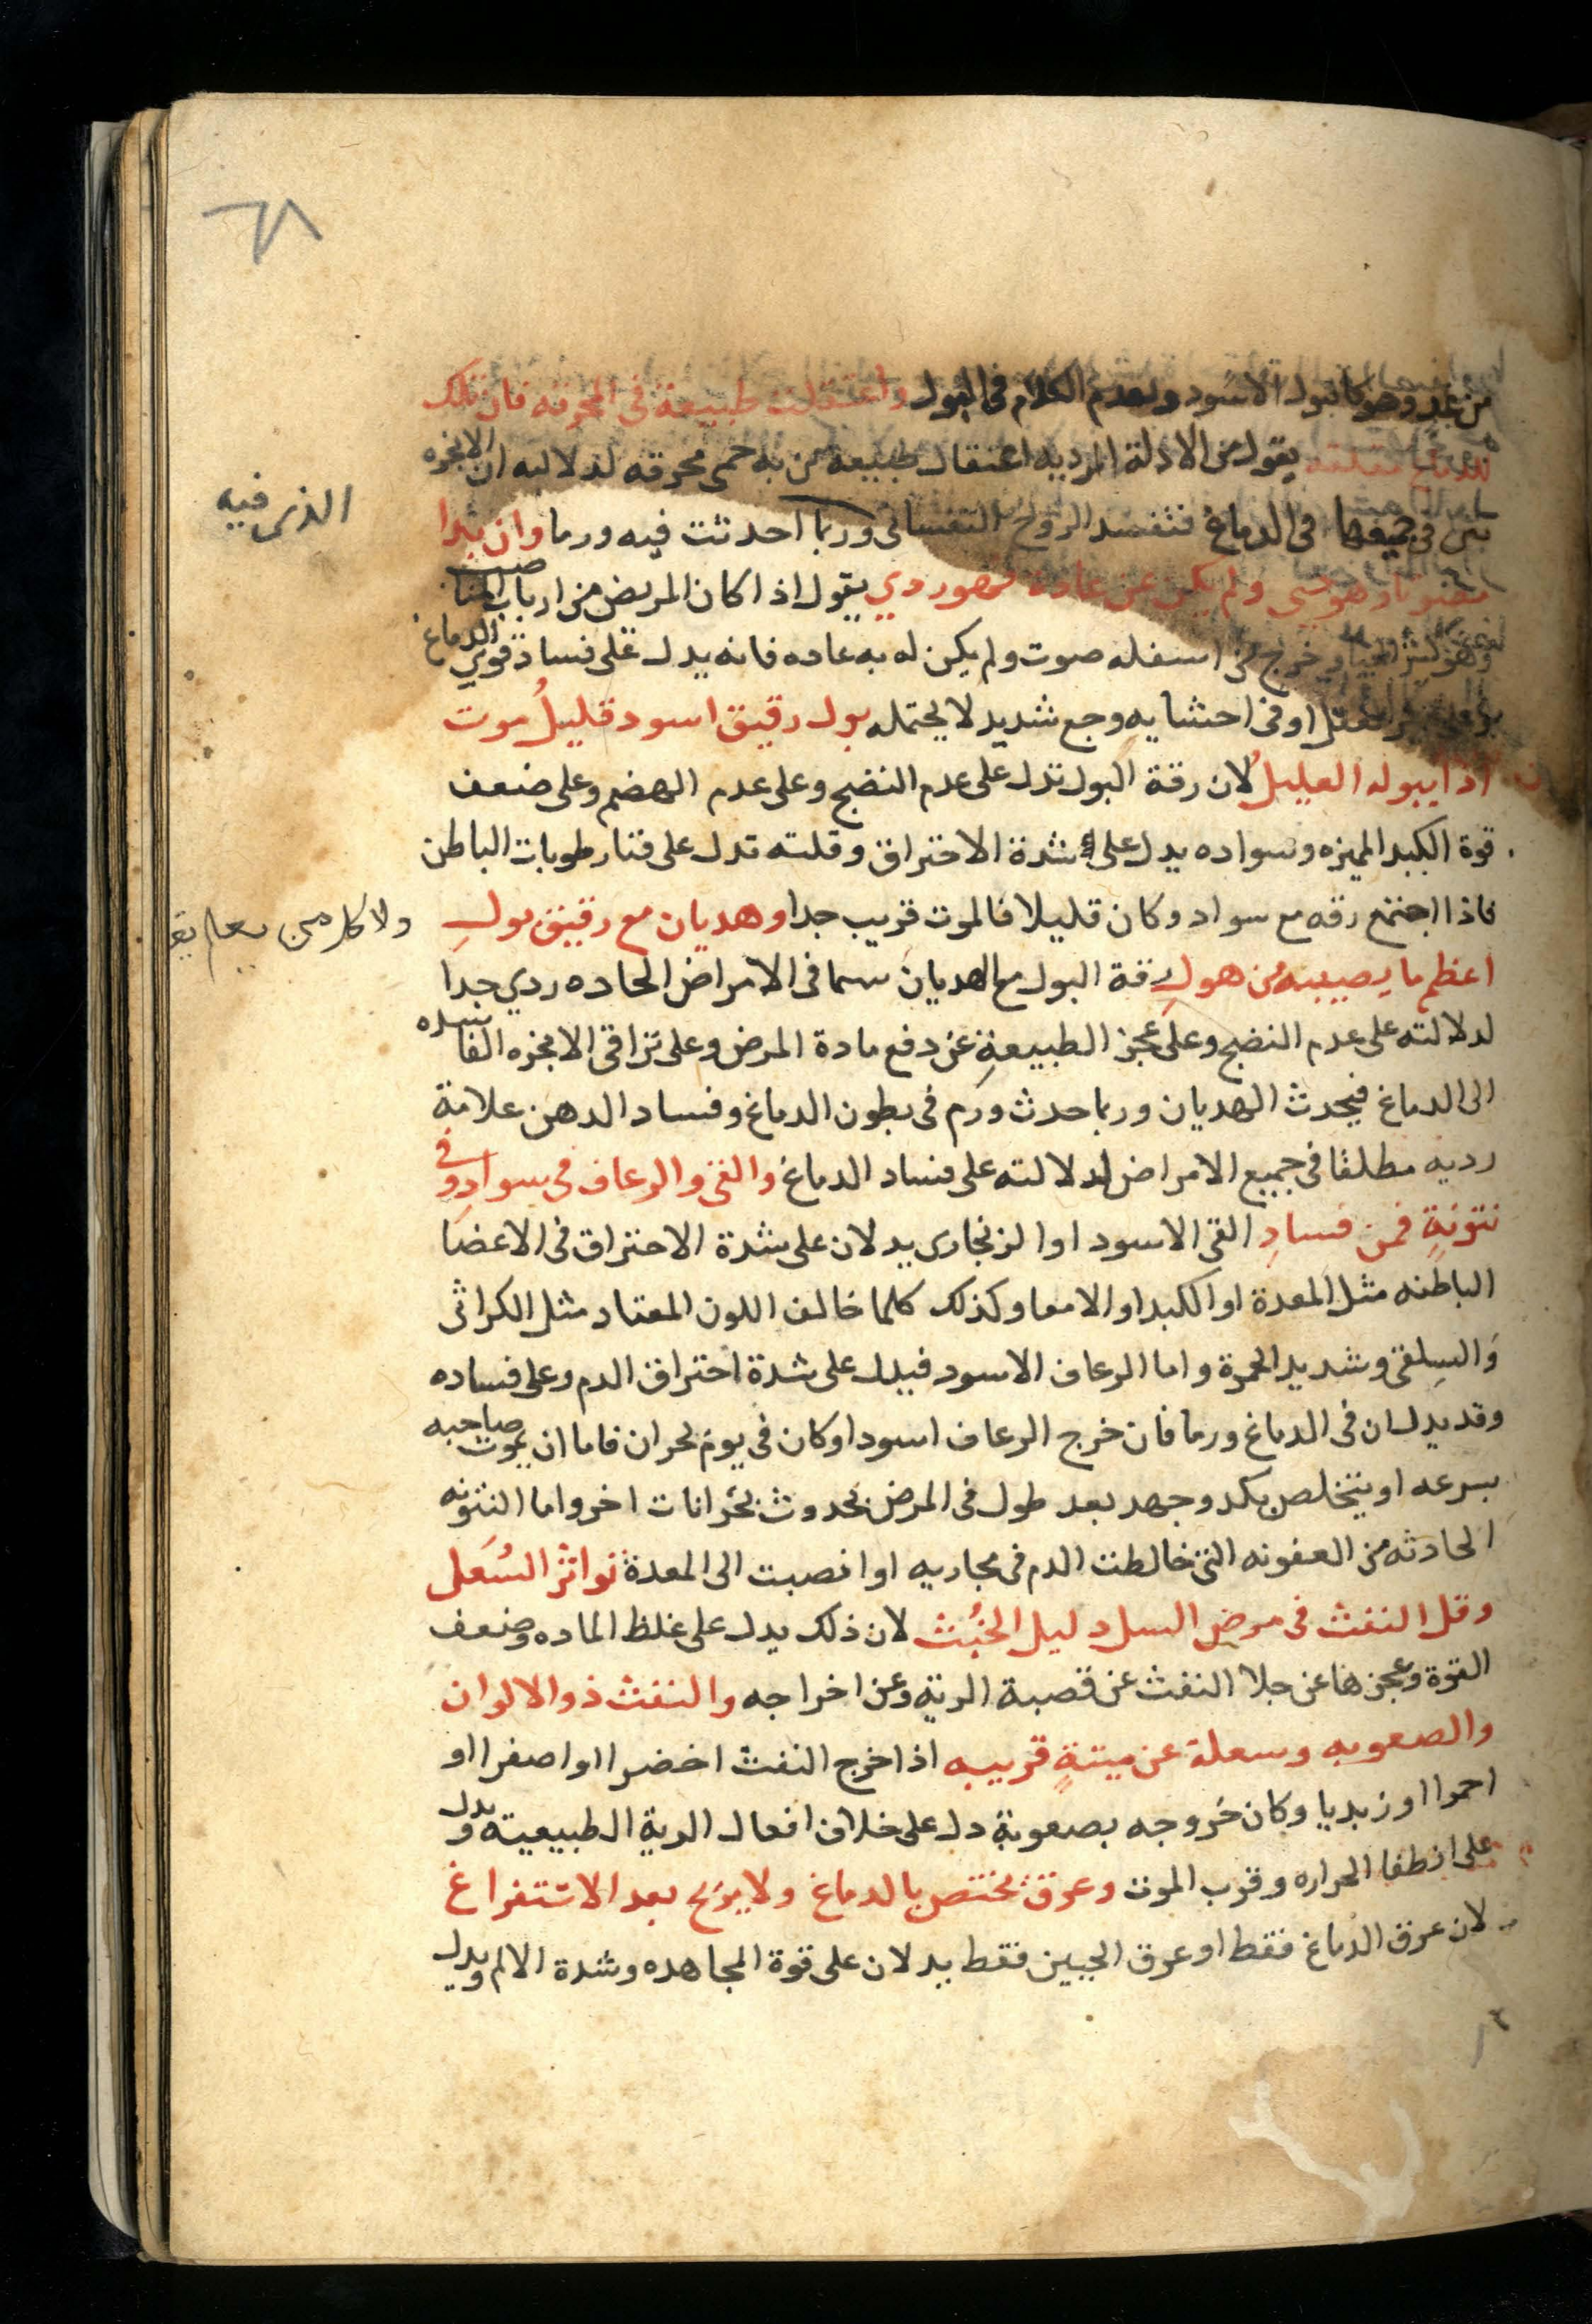 ٦٨
من غدد وهو كالبول الاسود ولعدم الكلام في البول واعتقلت طبيعة في المحرقه فان تلك
يقول من الادلة الرديه اعتقال طبيعة من به حمى محرقه لدلالته ان الابخره
في جميعها في الدماغ فتفسد الروح النفساني وربما احدثت فيه ورما وان بدا
الذى فيه
ولم يكن عن عادة فهو ردي يقول اذا كان المريض من ارباب المناصب
خرج من اسفله صوت ولم يكن له به عاده فانه يدل على فساد قوي الدماغ
او في احشايه وجع شديد لا يحتمله بول رقيق اسود قليلُ موت
اذا يبوله العليلُ لان رقة البول تدل على عدم النضج وعلى عدم الهضم وعلى ضعف
قوة الكبد المميزه وسواده يدل على شدة الاحتراق وقلته تدل على فنا رطوبات الباطن
فاذا اجتمع رقه مع سواد وكان قليلا فالموت قريب جدا وهديان مع رقيق بولِ
ولا كل من يعلم يق
اعظم ما يصيبه من هولِ رقة البول مع الهديان سما في الامراض الحاده ردي جدا
لدلالته على عدم النضج وعلى عجز الطبيعةِ عن دفع مادة المرض وعلى تراقي الابخره الفاسده
الى الدماغ فيحدث الهديان وربما حدث ورم في بطون الدماغ وفساد الدهن علامة
رديه مطلقا في جميع الامراض لدلالته على فساد الدماغ والقي والرعاف في سوادِ وفي
نتونةٍ فمن فسادِ القي الاسود او الزنجارى يدلان على شدة الاحتراق في الاعضا
الباطنه مثل المعدة او الكبد او الامعا وكذلك كلما خالف اللون المعتاد مثل الكراثى
والسلقي وشديد الحمرة واما الرعاف الاسود فيدل على شدة احتراق الدم وعلى فساده
وقد يدل ان في الدماغ ورما فان خرج الرعاف اسود او كان في يوم بحران فاما ان يموت صاحبه
بسرعه او يتخلص بكد وجهد بعد طول في المرض بحدوث بحرانات اخر واما النتونه
الحادثه من العفونه التي خالطت الدم في مجاريه او انصبت الى المعدة تواتر السُعَل
وقل النفث في مرض السل دليل الخُبث لان ذلك يدل على غلظ الماده وضعف
القوة وعجزها عن جلا النفث عن قصبة الرية وعن اخراجه والنفث ذو الالوان
والصعوبه وسعلة عن ميتةٍ قريبه اذا خرج النفث اخضرا او اصفرا او
احمرا او زبديا وكان خروجه بصعوبة دل على خلاف افعال الرية الطبيعية ويدل
على انطفا الحراره وقرب الموت وعرق مختص بالدماغ ولا يرح بعد الاستفراغ
لان عرق الدماغ فقط او عرق الجبين فقط يدلان على قوة المجاهده وشدة الالم ويدل